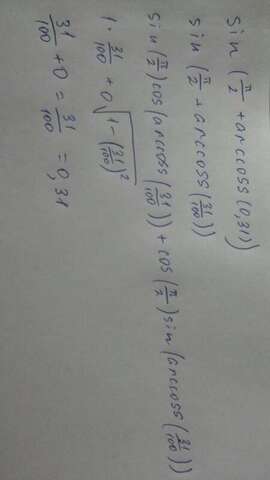 sin (π/2 + arccoss (0,31))
sin (π/2 + arccoss (31/100))
sin (π/2) cos (arccoss (31/100)) + cos (π/2) sin (arccoss (31/100))
1 · 31/100 + 0 √(1 - (31/100)²)
31/100 + 0 = 31/100 = 0,31